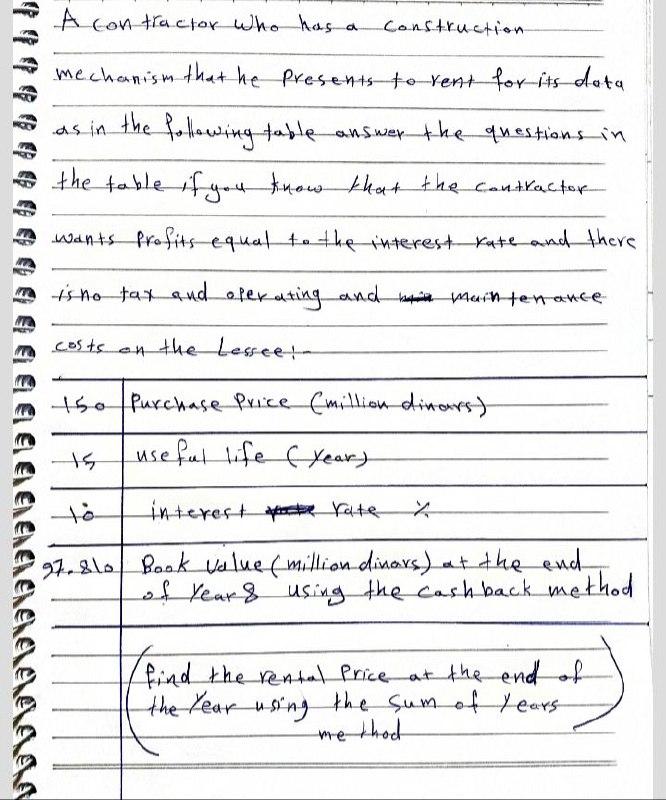 A contractor who has a construction
mechanism that he presents to rent for its data
as in the following table answer the questions in
the table if you know that the contractor
wants profits equal to the interest rate and there
is no tax and operating and maintenance
costs on the Lessee:-
150 Purchase Price (million dinars)
15 useful life (year)
10 interest rate %
97.810 Book Value (million dinars) at the end
of year 8 using the cash back method
(find the rental Price at the end of
the Year using the sum of years
method)